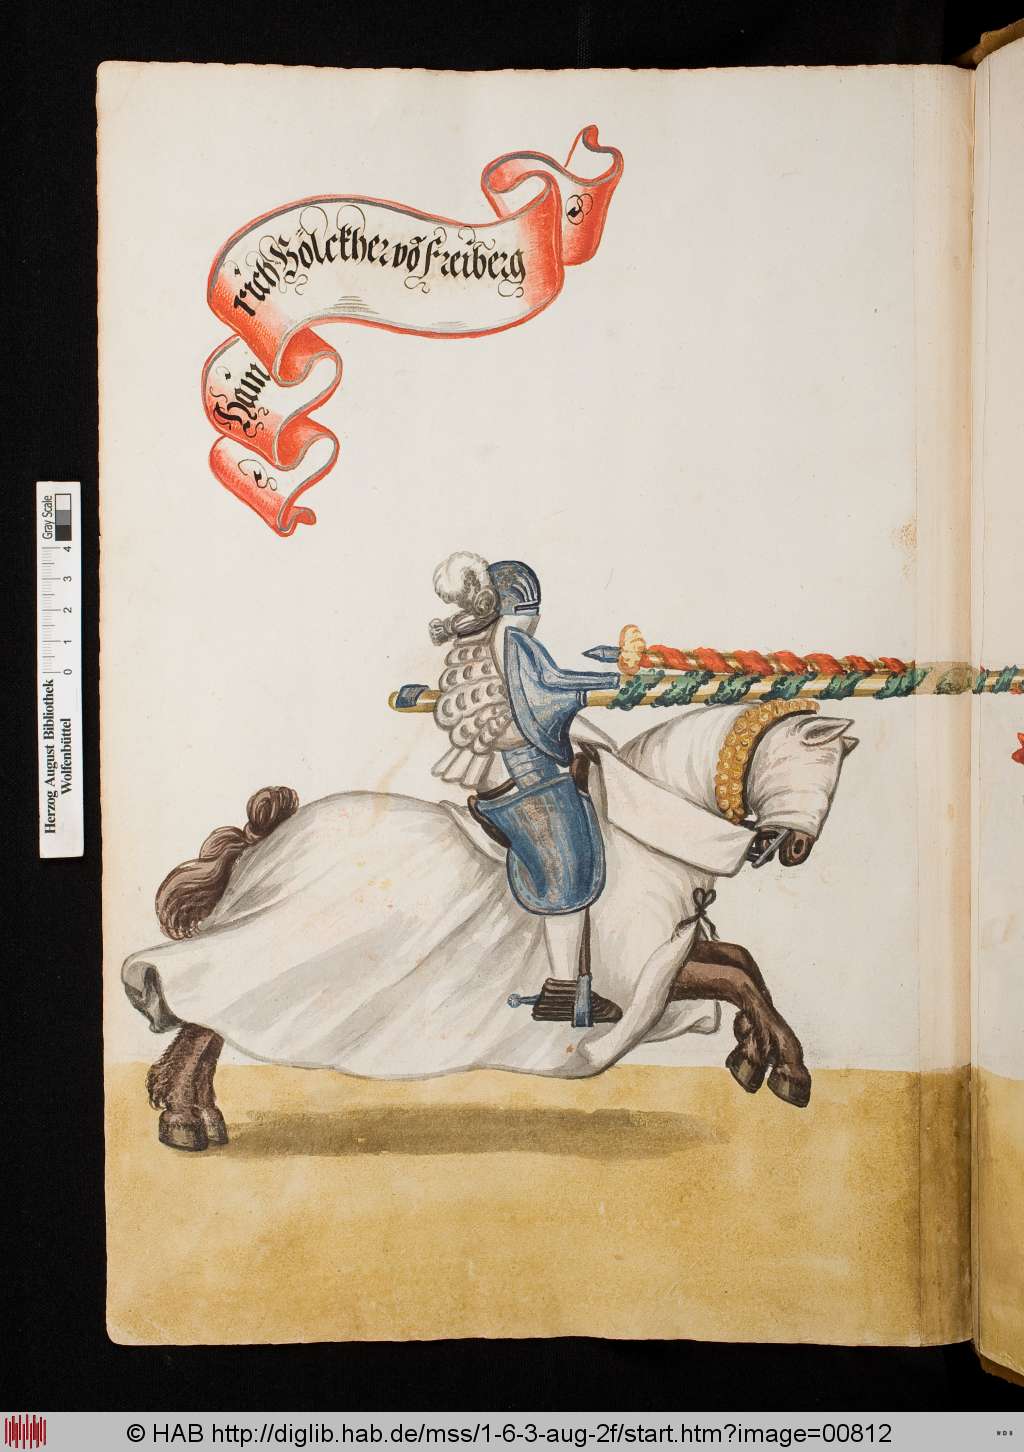 Hain
rich Hölckher võ Freiberg
Herzog August Bibliothek
Wolfenbüttel
0 1 2 3 4
Gray Scale
© HAB http://diglib.hab.de/mss/1-6-3-aug-2f/start.htm?image=00812